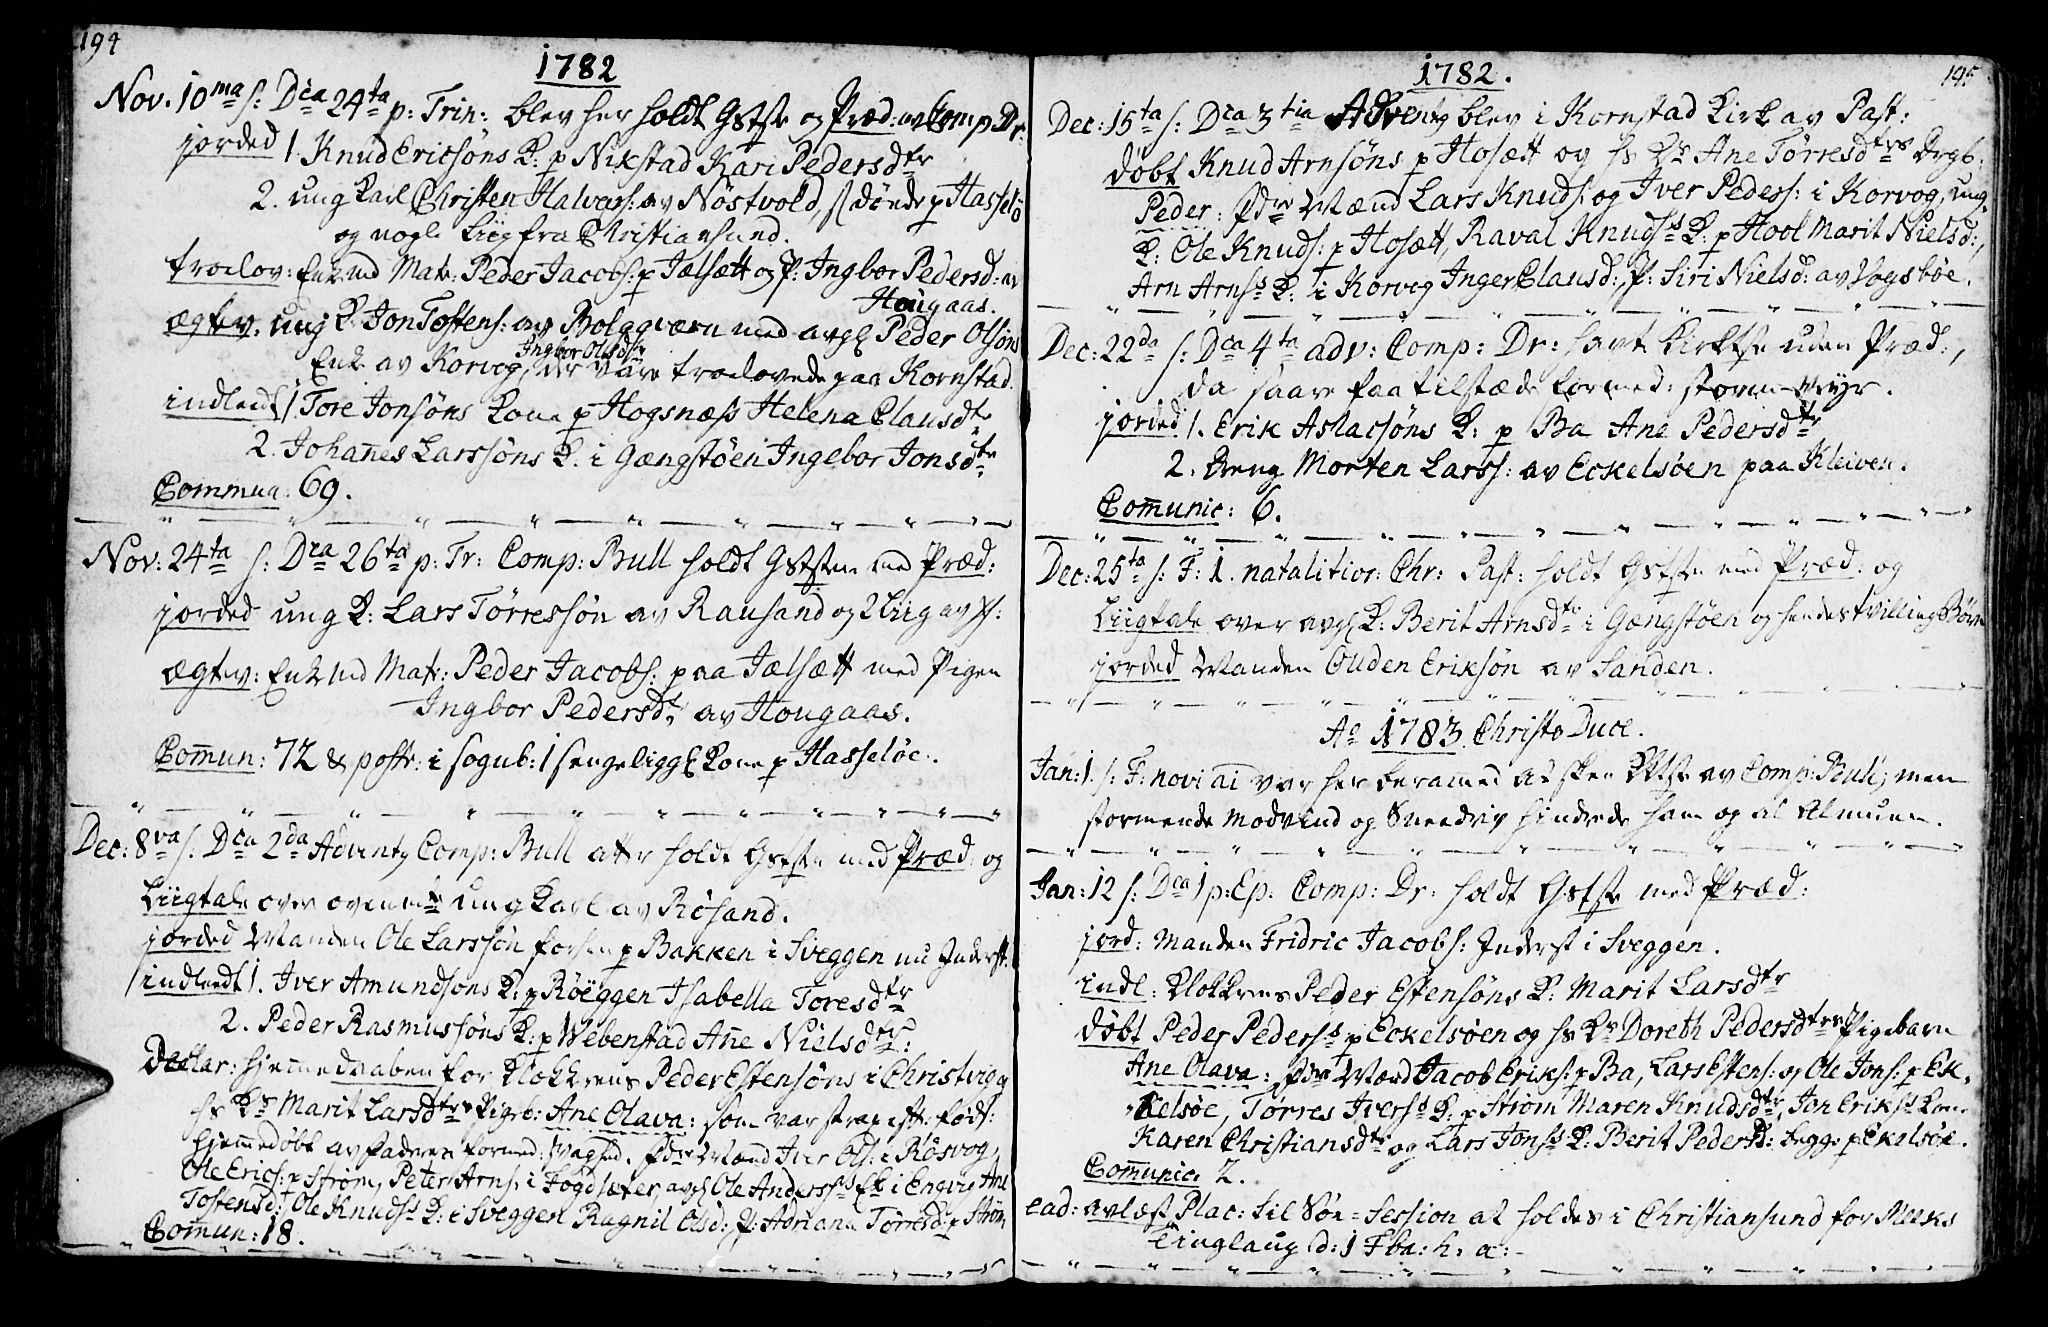 194
1782
Nov. 10ma s: Dca 24ta p: Trin: blev her holdt Gstste og Præd: av Comp Dr:
jorded 1. Knud Ericsöns K: p Nikstad Kari Pedersdtr
2. ung Karl Christen Halvars: av Nöstvold, döde p Hasselö
og nogle Liig fra Christiansund.
troelov: Enkemd Matr: Peder Jacobs: p Jælsætt og P: Ingbor Pedersd: av
Hougaas.
ægtev. ung K. Jon Tostens: av Bolgqværn med avgl Peder Olsöns
Enke av Korvog, Ingbor Olsdtr der vare troelovede paa Kornstad.
indledt 1. Tore Jonsöns Kone p Hogsnæss Helena Clausdtr
2. Johañes Larssöns K. i Gængstöen Ingebor Jonsdtr
Commun: 69.
Nov: 24ta s: Dca 26ta p: Tr: Comp: Bull holdt Gststen med Præd:
jorded ung K: Lars Törressön av Rausand og 2 Liig av X:
ægtev: Enkemd Matr: Peder Jacobs: paa Jælsætt med Pigen
Ingbor Pedersdtr av Hougaas.
Com̃un: 72 & postr: i sognb: 1 sengeliggl Kone p Hasselöe.
Dec: 8va s. Dca 2da Adventg Comp: Bull atter holdt Gstste med Præd: og
Liigtale over ovenmte ung Karl av Rösand.
jorded Manden Ole Larssön forhen p Bakken i Sveggen nu Inderst.
indledt 1. Iver Amundsöns K: p Röeggen Isabella Toresdtr
2. Peder Rasmussöns K: p Webenstad Añe Nielsdtr:
Declar: hjemedaaben for Klokkrens Peder Estensöns i Christvig
hs Ks Marit Larsdtrs Pigeb: Ane Olava: som var strax eft: födt:
hjemedöbt av Faderen formed: Svaghed. Fdre Mænd Iver Ols: i Rösvog,
Ole Erics: p Ström, Peter Arns: i Fogdsæter, avgl Ole Anderssøs Ek i Engvig Ane
Tostensd: Ole Knudss K: i Sveggen Ragnil Olsd: P: Adriana Törresd: p Ström
Com̃un: 18.
195
1782.
Dec: 15ta s: Dca 3tia Adventg blev i Kornstad Kirk av Past:
döbt Knud Arnsöns p Hosætt og hs Ks Ane Törresdtrs Drgb:
Peder: Fdre Mænd Lars Knuds: og Iver Peders: i Korvog, ung
K: Ole Knuds: p Hosætt, Raval Knudss K: p Hool Marit Nielsd:,
Arn Arnss K: i Korvog Inger Clausd: P: Siri Nielsd: av Vogsböe.
Dec: 22da s: Dca 4ta adv: Comp: Dr: havt Kirktste uden Præd:,
da saare faa tilstæde formed: storm-vejr.
jorded 1. Erik Aslacsöns K: p Ba Ane Pedersdtr
2. dreng Morten Larss: av Eckelsöen paa Kleiven.
Com̃unic: 6.
Dec: 25ta s: F: 1. natalitior: Chr: Past: holdt Gstste med Præd: og
Liigtale over avgl K: Berit Arnsdtr i Gængstöen og hendes tvilling Börn
jorded Manden Ouden Eriksön av Sanden.
Ao 1783 Christo Duce.
Jan: 1. s: F: novi ai var her beramed at skee Ktste av Comp: Bull; men
stormende modvind og Sneedriv hindrede ham og al Almuen.
Jan: 12 s: Dca 1 p: Ep: Comp: Dr: holdt Gstste med Præd:
jord: manden Fridric Jacobs: Inderst i Sveggen.
indl: Klokkrens Peder Estensöns K: Marit Larsdtr
döbt Peder Pederss p Eckelsöen og hs Ks Doreth Pedersdtrs Pigebarn
Ane Olava: Fdre Mænd Jacob Eriks: p Ba, Lars Estens: og Ole Jons: p Ek-
kelsöe, Törres Iverss K. p Ström Maren Knudsdtr, Jon Erikss Kone
Karen Christiansdtr og Lars Jonss K: Berit Pedersd: begge p Ekelsöe.
Com̃unic: 2.
ead: avlæst Plac: til Söe-Session at holdes i Christiansund for Merks
Einglaug d: 1 Fba: h: a: